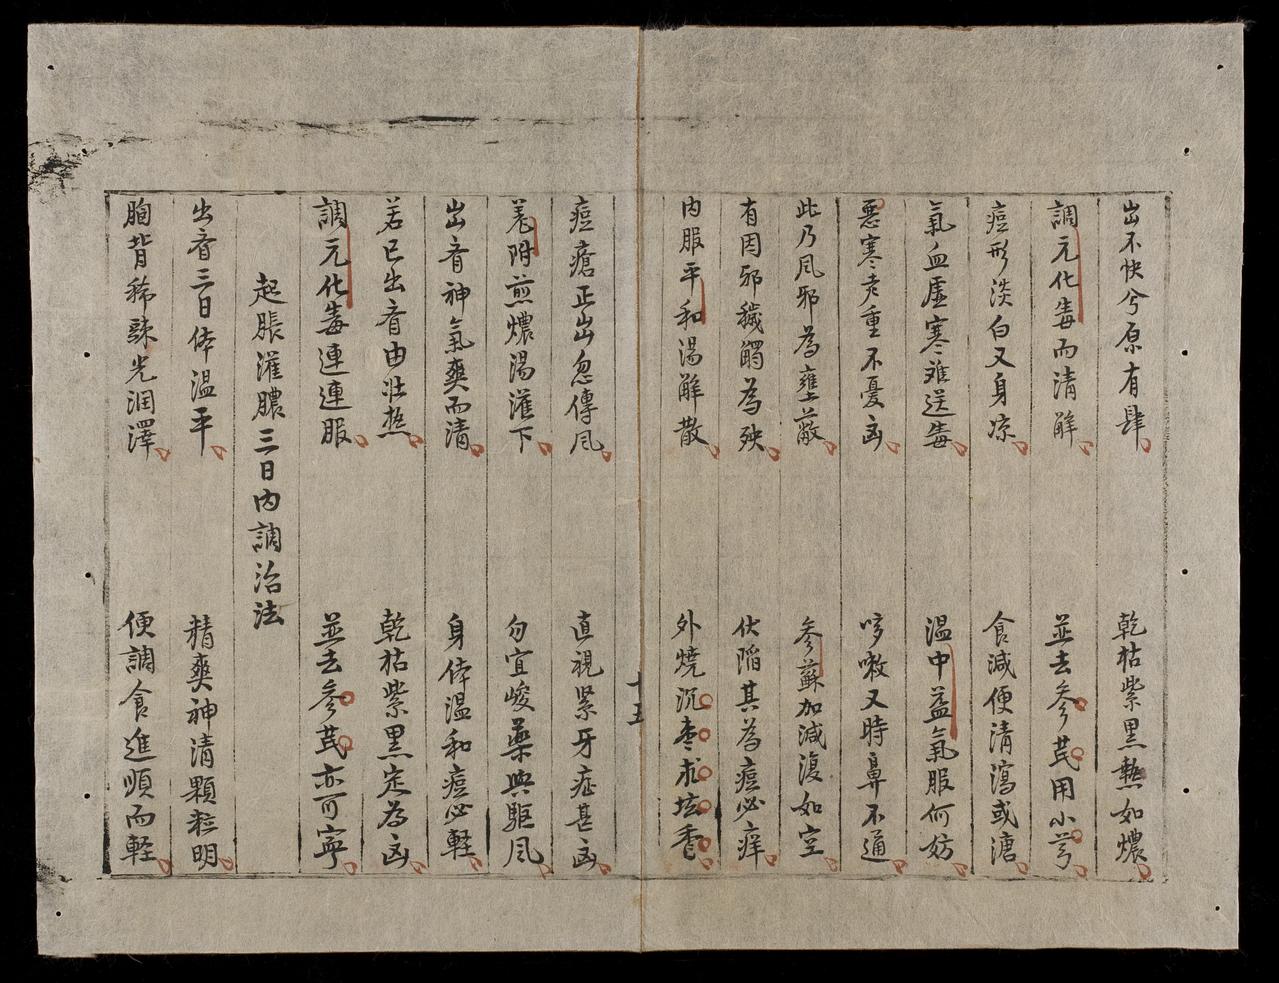 出不快兮原有肆 乾枯紫黑熱如燶
調元化毒而清解 並去參芪用小芎
痘形淡白又身凉 食減便清瀉或溏
氣血虛寒难送毒 溫中益氣服何妨
惡寒老重不憂凶 哆嗽又時鼻不通
此乃風邪為壅蔽 參蘇加減復如空
有因邪穢觸為殃 伏陷其為痘必痒
內服平和湯解散 外燒沉枣术坛香
十五
痘瘡正出忽傳風 直視紧牙症甚凶
羗附煎燶湯灌下 勿宜峻藥與驅風
出齊神氣爽而清 身体温和痘必輕
若已出齊由壯热 乾枯紫黑定為凶
調元化毒連連服 並去參芪亦可寧
起脹灌膿三日內調治法
出齊三日体溫平 精爽神清顆粒明
胸背稀疎光润澤 便調食進順而軽